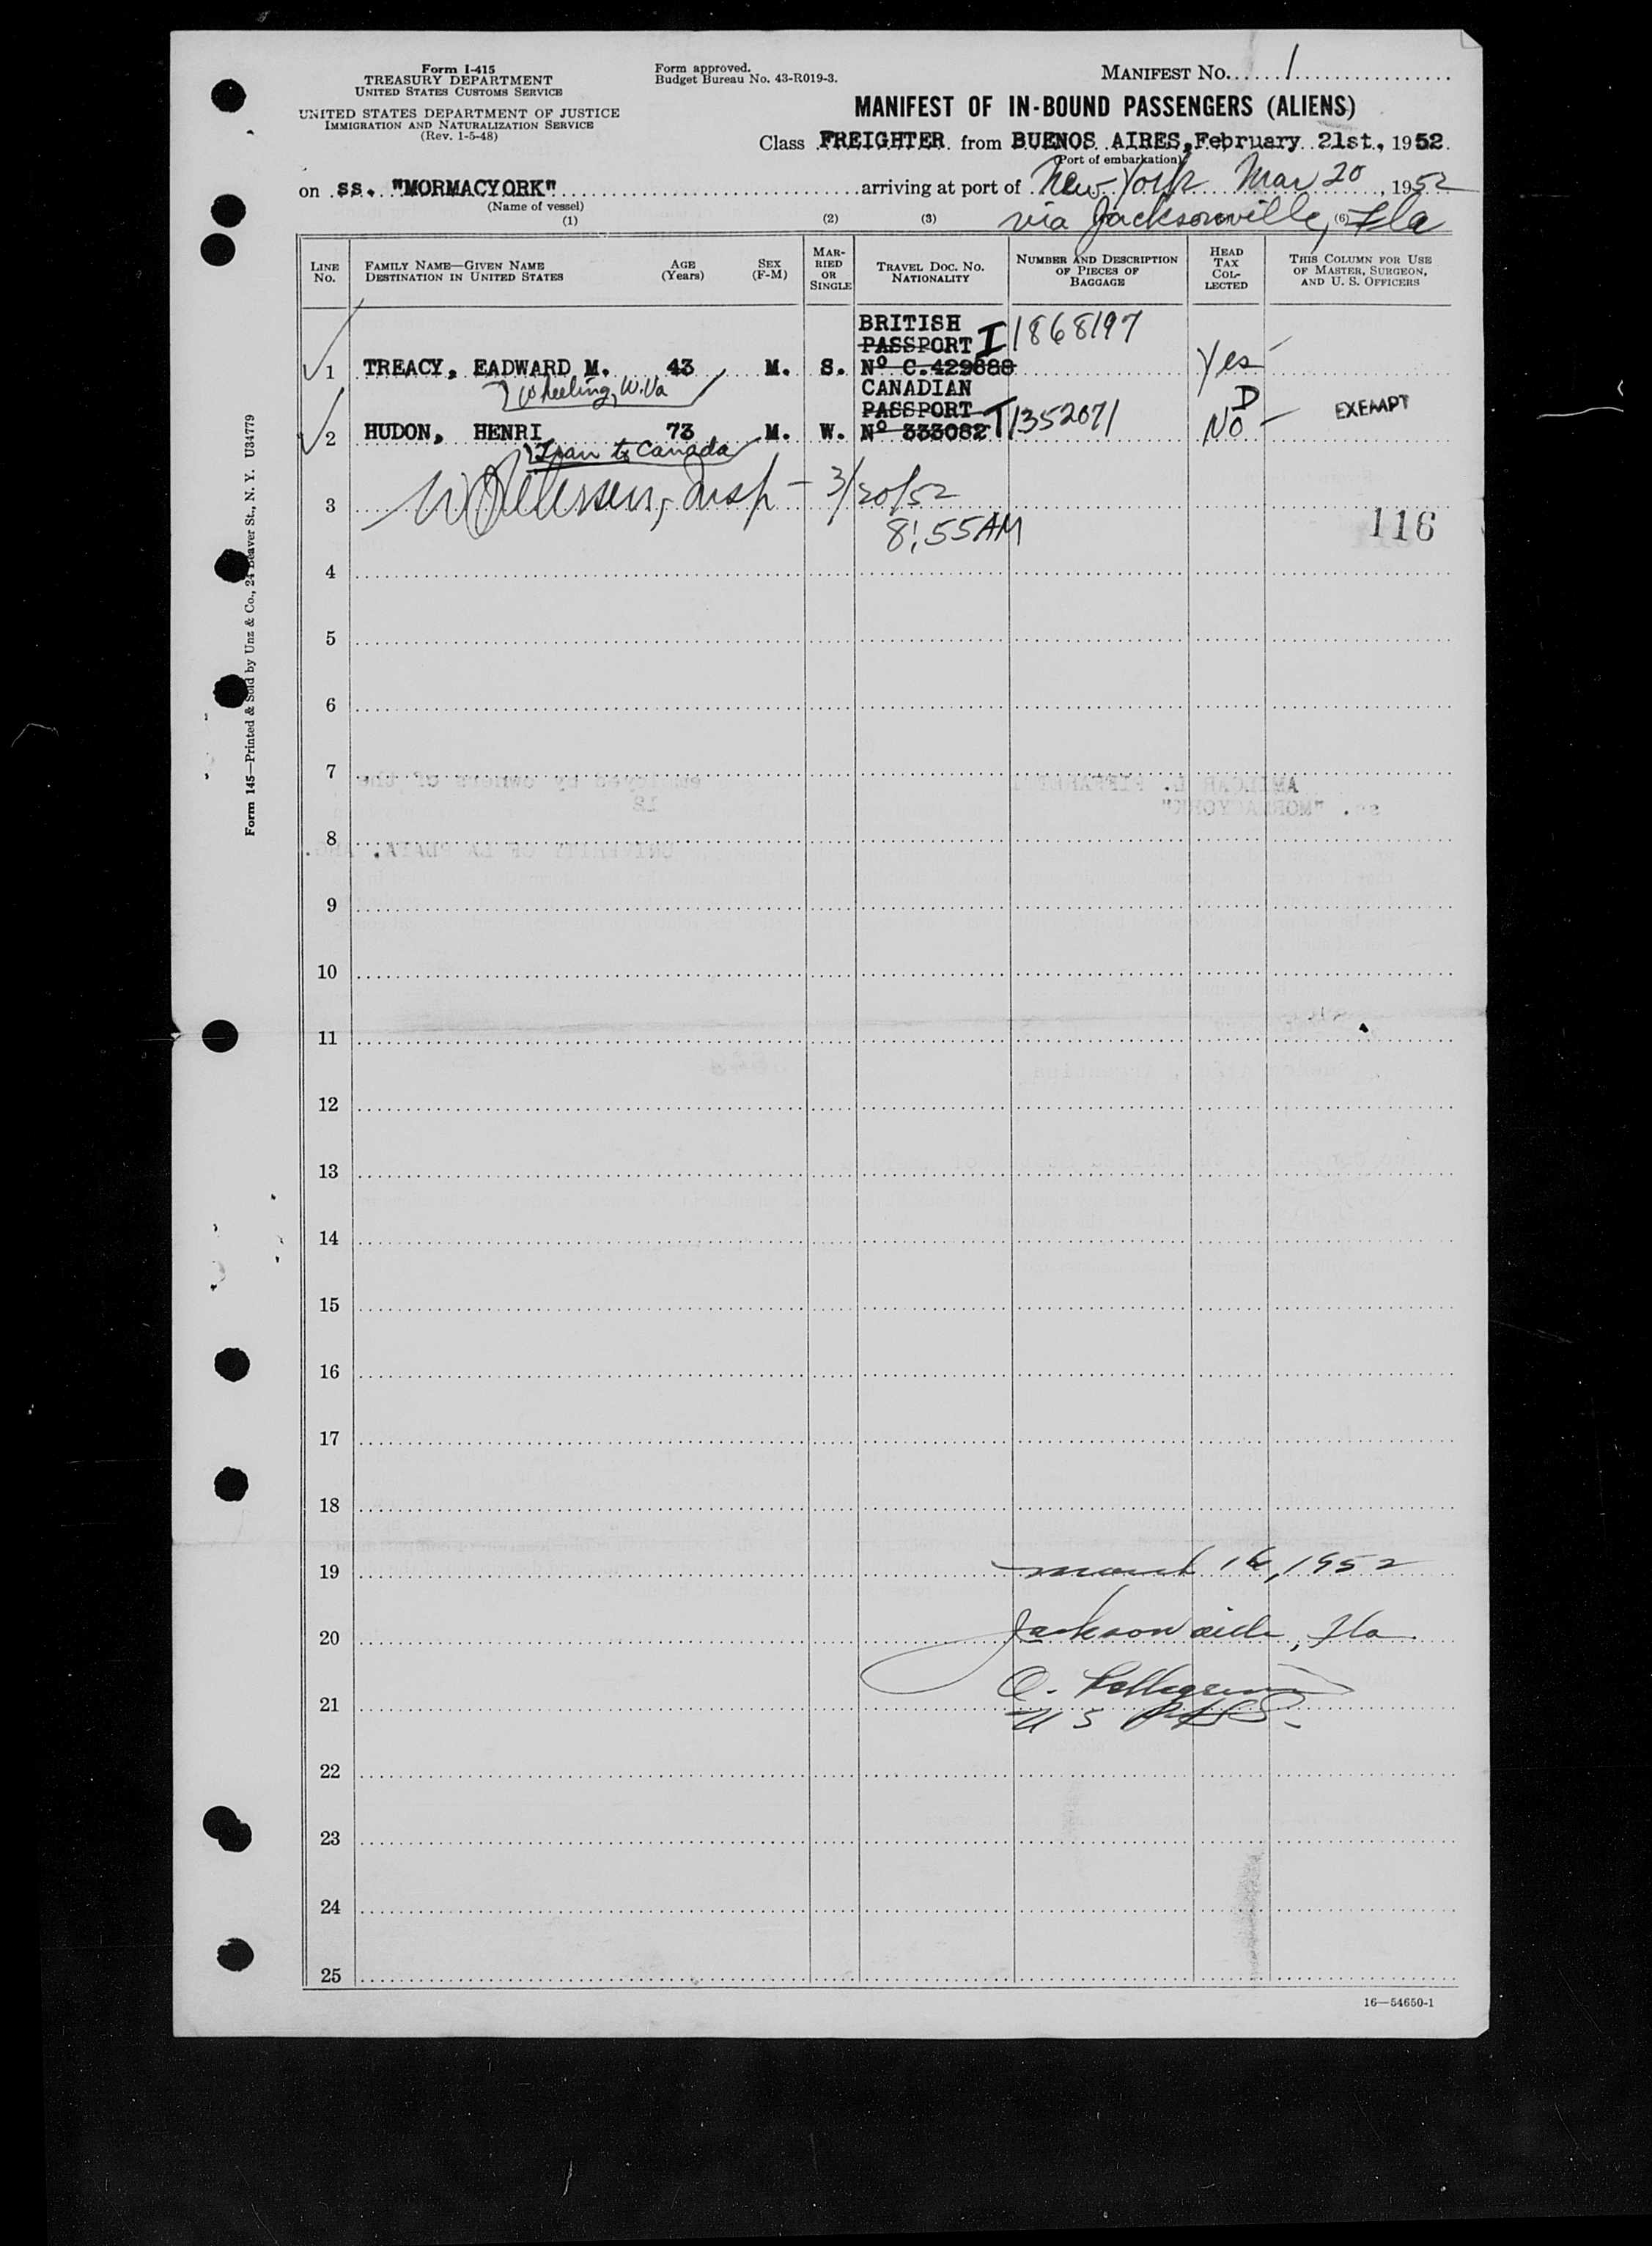 Form I-415
TREASURY DEPARTMENT
UNITED STATES CUSTOMS SERVICE
UNITED STATES DEPARTMENT OF JUSTICE
IMMIGRATION AND NATURALIZATION SERVICE
(Rev. 1-5-48)
Form approved.
Budget Bureau No. 43-R019-3.
MANIFEST NO. 1
MANIFEST OF IN-BOUND PASSENGERS (ALIENS)
Class FREIGHTER from BUENOS AIRES, February 21st., 1952.
(Port of embarkation)
on ss. "MORMACYORK" arriving at port of New York Mar 20, 1952
(Name of vessel)
via Jacksonville, Fla
(1) (2) (3) (6)
LINE No.
FAMILY NAME—GIVEN NAME
DESTINATION IN UNITED STATES
AGE (Years)
SEX (F-M)
MARRIED OR SINGLE
TRAVEL DOC. NO.
NATIONALITY
NUMBER AND DESCRIPTION
OF PIECES OF
BAGGAGE
HEAD
TAX
COL-
LECTED
THIS COLUMN FOR USE
OF MASTER, SURGEON,
AND U. S. OFFICERS
BRITISH
PASSPORT I 1868197
1 TREACY, EADWARD M. 43 M. S. Nº C.429688 Yes
Wheeling, W.Va
CANADIAN
PASSPORT T 1352071 D
2 HUDON, HENRI 73 M. W. Nº 333082 No EXEMPT
Tran to Canada
3 Insp - 3/20/52
8:55AM
116
4
5
6
7
8
9
10
11
12
13
14
15
16
17
18
19 March 16, 1952
20 Jacksonville, Fla.
21
U S PHS.
22
23
24
25
16—54650-1
Form 145—Printed & Sold by Unz & Co., 24 Beaver St., N. Y. U34779